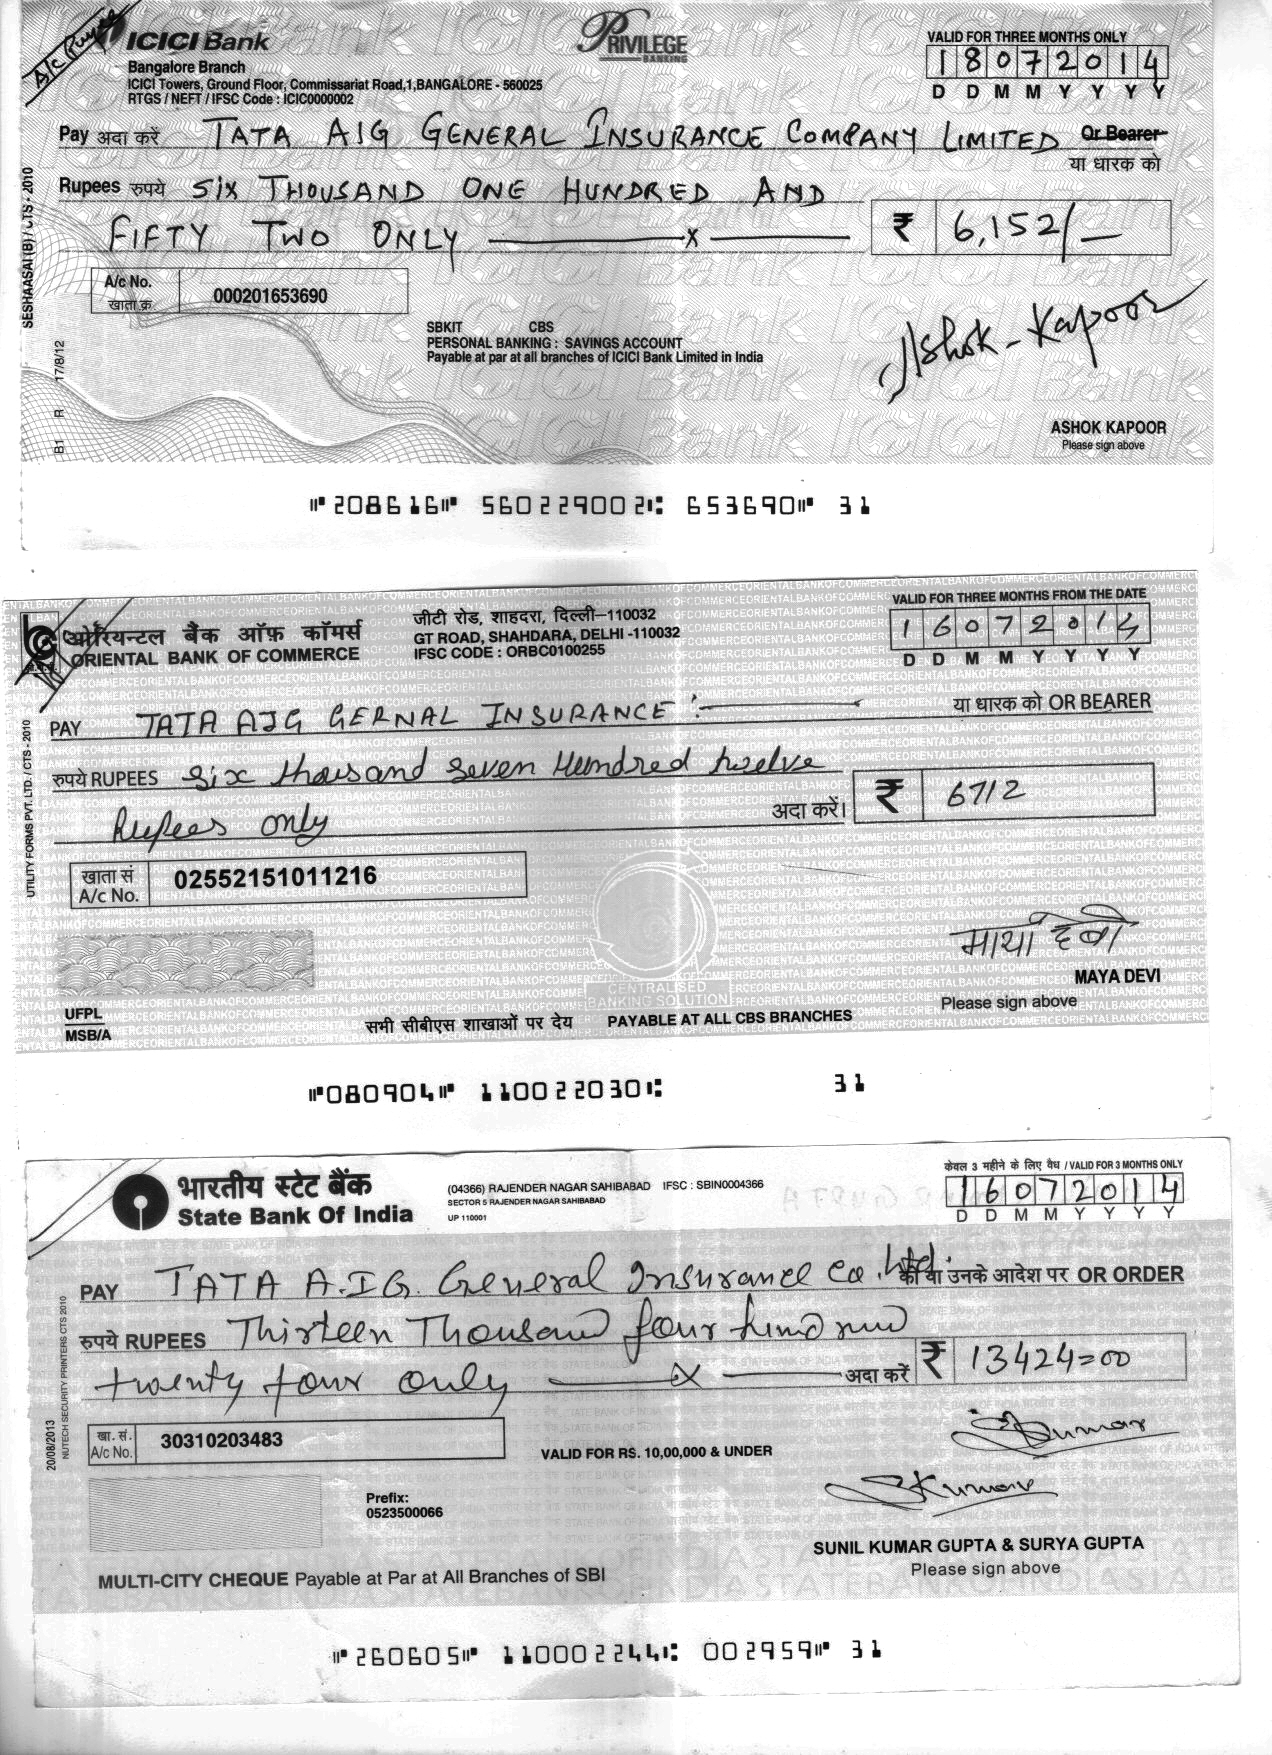 A/c Payee
ICICI Bank
PRIVILEGE
BANKING
VALID FOR THREE MONTHS ONLY
18072014
D D M M Y Y Y Y
Bangalore Branch
ICICI Towers, Ground Floor, Commissariat Road,1,BANGALORE - 560025
RTGS / NEFT / IFSC Code : ICIC0000002
Pay अदा करें TATA AIG GENERAL INSURANCE COMPANY LIMITED Or Bearer
या धारक को
Rupees रुपये SIX THOUSAND ONE HUNDRED AND
FIFTY TWO ONLY ——x—— ₹ 6,152/-
A/c No.
खाता क्र.
000201653690
SBKIT CBS
PERSONAL BANKING : SAVINGS ACCOUNT
Payable at par at all branches of ICICI Bank Limited in India
Ashok Kapoor
ASHOK KAPOOR
Please sign above
SESHAASAI(B) / CTS - 2010
B1 R 17/8/12
⑈208616⑈ 560229002⑆ 653690⑈ 31
ओरियन्टल बैंक ऑफ़ कॉमर्स
ORIENTAL BANK OF COMMERCE
जीटी रोड, शाहदरा, दिल्ली–110032
GT ROAD, SHAHDARA, DELHI -110032
IFSC CODE : ORBC0100255
VALID FOR THREE MONTHS FROM THE DATE
16072014
D D M M Y Y Y Y
PAY TATA AIG GERNAL INSURANCE या धारक को OR BEARER
रुपये RUPEES Six thousand seven Hundred twelve
Rupees only अदा करें। ₹ 6712
खाता सं
A/c No.
02552151011216
माया देवी
MAYA DEVI
Please sign above
CENTRALISED
BANKING SOLUTION
UFPL
MSB/A
सभी सीबीएस शाखाओं पर देय PAYABLE AT ALL CBS BRANCHES
UTILITY FORMS PVT. LTD. / CTS - 2010
⑈080904⑈ 110022030⑆ 31
भारतीय स्टेट बैंक
State Bank Of India
(04366) RAJENDER NAGAR SAHIBABAD IFSC : SBIN0004366
SECTOR 5 RAJENDER NAGAR SAHIBABAD
UP 110001
केवल 3 महीने के लिए वैध / VALID FOR 3 MONTHS ONLY
16072014
D D M M Y Y Y Y
PAY TATA A.I.G. General Insurance Co. Ltd. को या उनके आदेश पर OR ORDER
रुपये RUPEES Thirteen Thousand four hundred
twenty four only ——x—— अदा करें ₹ 13424=00
खा. सं.
A/c No.
30310203483
VALID FOR RS. 10,00,000 & UNDER
Prefix:
0523500066
SKumar
SKumar
SUNIL KUMAR GUPTA & SURYA GUPTA
Please sign above
MULTI-CITY CHEQUE Payable at Par at All Branches of SBI
20/08/2013
NUTECH SECURITY PRINTERS CTS 2010
⑈260605⑈ 110002244⑆ 002959⑈ 31